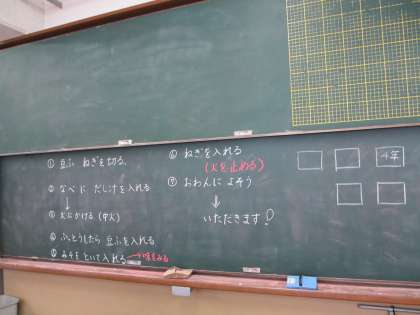 ① 豆ふ ねぎを切る。
② なべに だし汁を入れる
↓
③ 火にかける (中火)
④ ふっとうしたら 豆ふを入れる
⑤ みそをといて入れる
味をみる
⑥ ねぎを入れる
(火を止める)
⑦ おわんに よそう
↓
いただきます!
4年